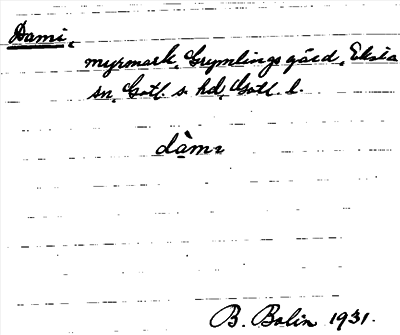 Dami,
myrmark, Grymlings gård, Eksta
sn, Gotl. s. hd, Gotl. l.
dàmı
B. Bolin 1931.